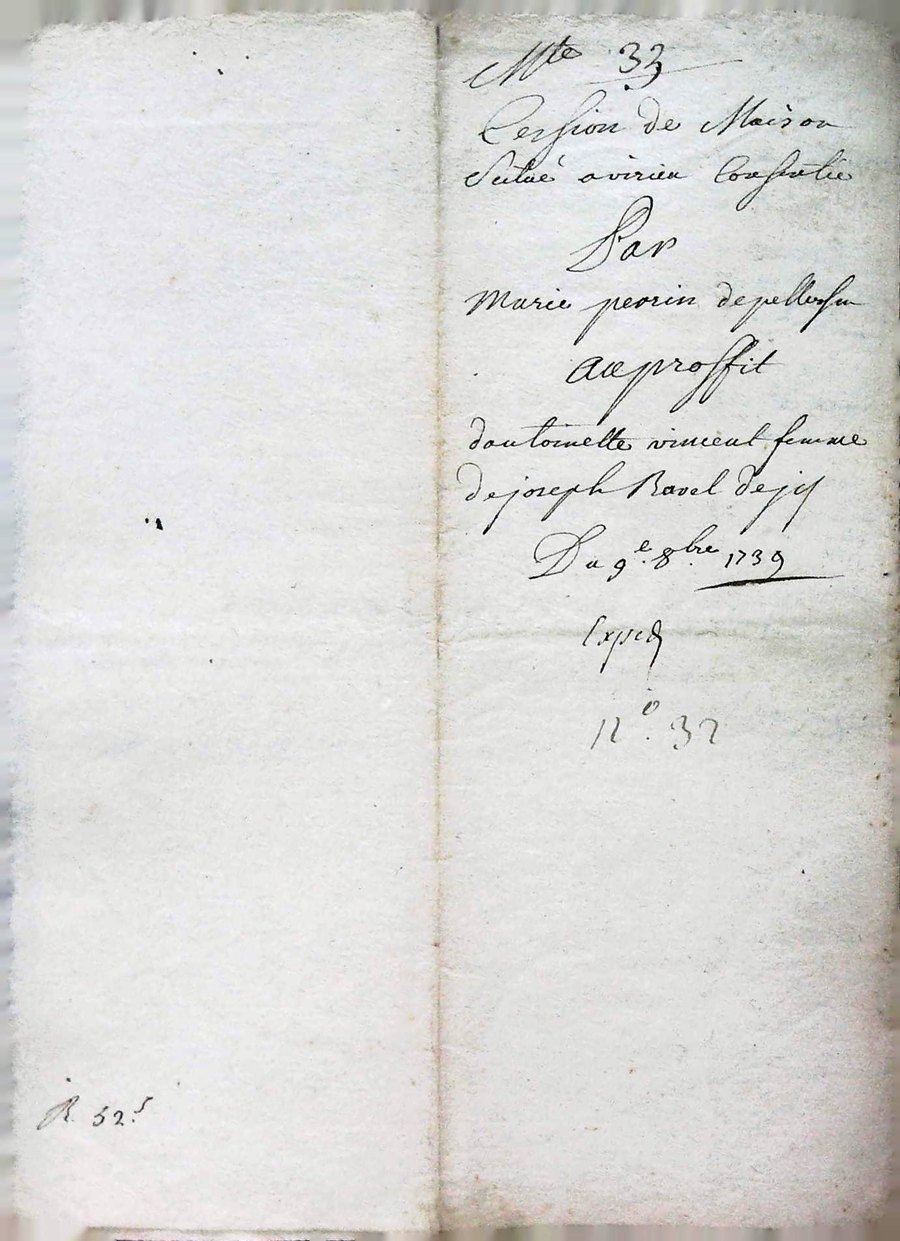 Mte 33
Cession de Maison
Scitué a virieu Consentie
Par
Marie perrin de
Au proffit
dantoinette vincent femme
de joseph Ravel de
Du 9e. 8bre 1739
Exped
N°. 32
R 52s